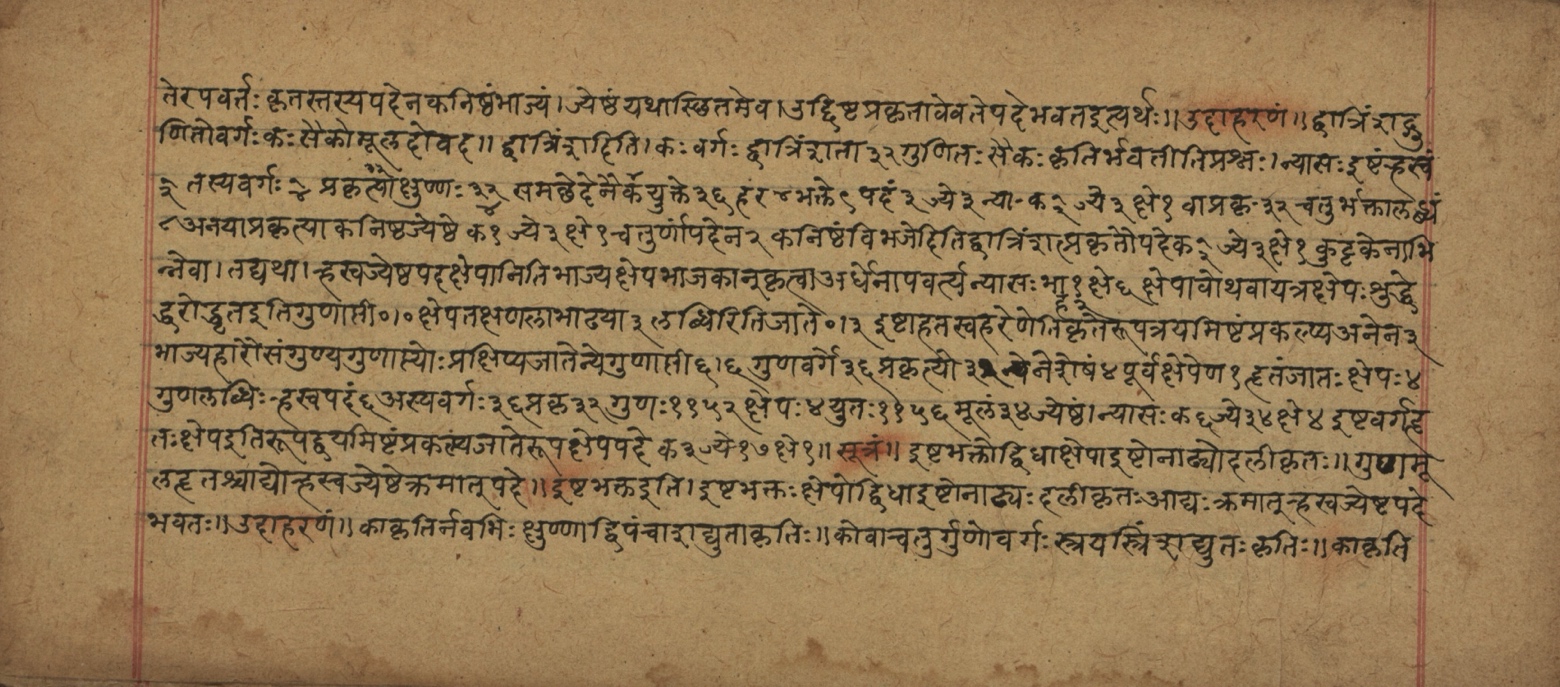 तेरपवर्त्तः कृतस्तस्यपदेनकनिष्ठंभाज्यं। ज्येष्ठं यथास्छितमेव। उद्दिष्टप्रकृतावेवतेपदेभवतइत्यर्थः॥ उदाहरणं॥ द्वात्रिंशद्गु
णितोवर्गः कः सैकोमूलदोवद॥ द्वात्रिंशदिति। कः वर्गः द्वात्रिंशता ३२ गुणितः सैकः कृतिर्भवतीतिप्रश्नः। न्यासः इष्टंऱ्हस्वं
तस्यवर्गः प्रकृत्याक्षुण्णः समछेदेनैर्केयुक्ते ३६ हर ४ भक्ते ९ पदं ३ ज्ये ३ न्या॰ क ज्ये ३ क्षे १ वाप्रकृ॰ ३२ चतुर्भक्तालब्धं
८ अनयाप्रकृत्या कनिष्ठज्येष्ठे क १ ज्ये ३ क्षे १ चतुर्णांपदेन २ कनिष्ठंविभजेदितिद्वात्रिंशत्प्रकृतौपदेक ज्ये ३ क्षे १ कुट्टकेनाभि
न्नेवा। तद्यथा। ऱ्हस्वज्येष्ठपदक्षेपानितिभाज्यक्षेपभाजकान्कृत्वा अर्धेनापवर्त्त्य न्यासः भा १ क्षे ६ क्षेपाभावोथवायत्रक्षेपः शुद्धे
द्धरोद्धृतइतिगुणाप्ती ०।० क्षेपतक्षणलाभाढ्या ३ लब्धिरितिजाते ०।३ इष्टाहतस्वहरेणेतिकृतेरूपत्रयमिष्टंप्रकल्प्य अनेन ३
भाज्यहारौसंगुण्यगुणाप्त्योः प्रक्षिप्यजातेन्येगुणाप्ती ६।६ गुणवर्गे ३६ प्रकृत्यो ३२ न्येनेशेषं ४ पूर्वक्षेपेण १ हृतंजातः क्षेपः ४
गुणलब्धिः ऱ्हस्वपदं ६ अस्यवर्गः ३६ प्रकृ ३२ गुणः ११५२ क्षेपः ४ युतः ११५६ मूलं ३४ ज्येष्ठं। न्यासः क ६ ज्ये ३४ क्षे ४ इष्टवर्गहृ
तः क्षेपइतिरूपद्वयमिष्टंप्रकल्प्यजातेरूपक्षेपपदे क ३ ज्ये १७ क्षे १॥ सूत्रं॥ इष्टभक्तोद्विधाक्षेपाइष्टोनाढ्योदलीकृतः॥ गुणमू
लहृतश्चाद्योऱ्हस्वज्येष्ठेक्रमात्पदे॥ इष्टभक्तइति। इष्टभक्तः क्षेपोद्विधाइष्टोनाढ्यः दलीकृतः आद्यः क्रमात्ऱ्हस्वज्येष्टपदे
भवतः॥ उदाहरणं॥ काकृतिर्नवभिः क्षुण्णाद्विपंचाशद्युताकृतिः॥ कोवाचतुर्गुणोवर्गः स्त्रयस्त्रिंशद्युतः कृतिः॥ काकृति